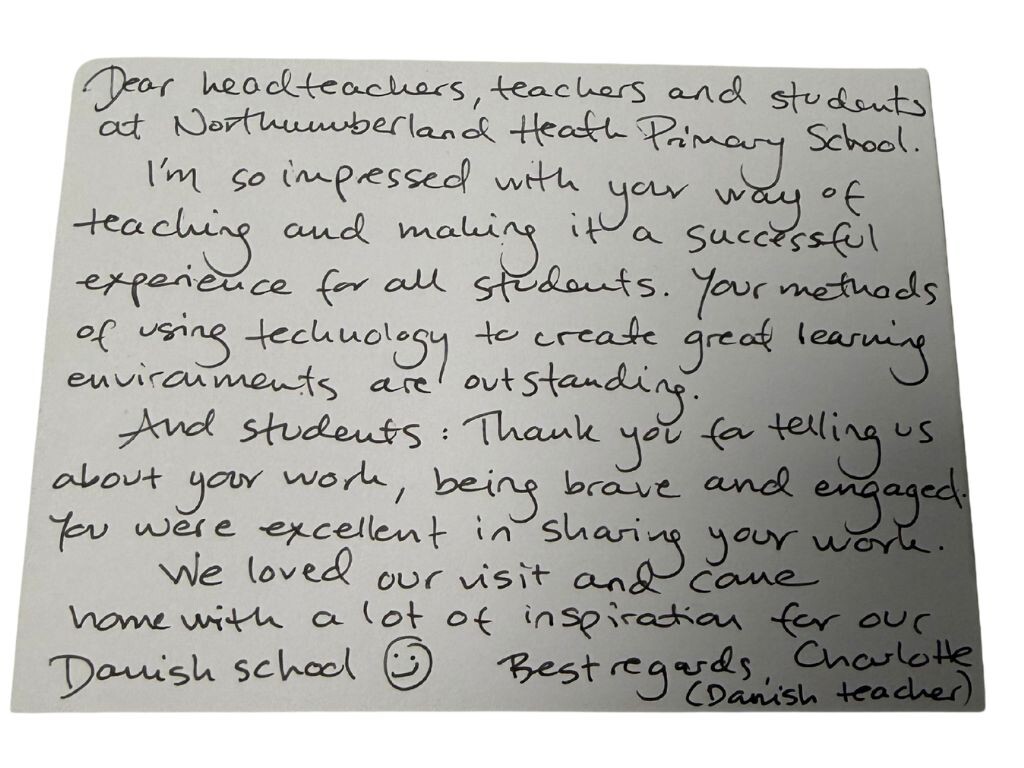 Dear headteachers, teachers and students
at Northumberland Heath Primary School.
I'm so impressed with your way of
teaching and making it a successful
experience for all students. Your methods
of using technology to create great learning
environments are outstanding.
And students: Thank you for telling us
about your work, being brave and engaged.
You were excellent in sharing your work.
We loved our visit and came
home with a lot of inspiration for our
Danish school ☺ Best regards, Charlotte
(Danish teacher)